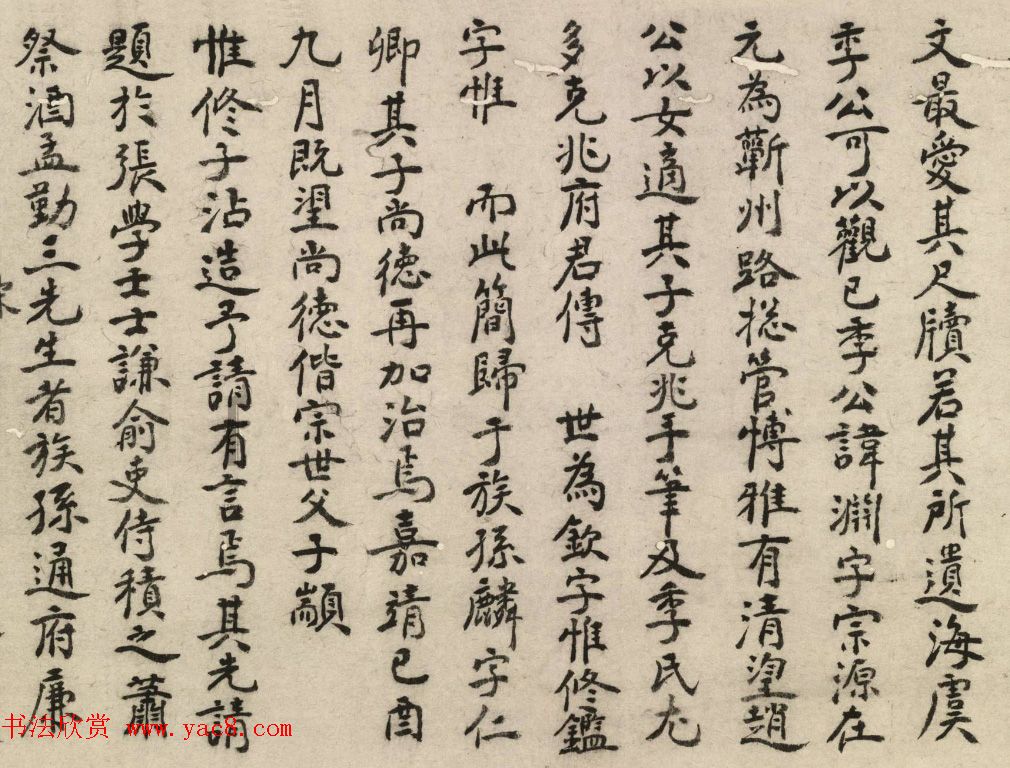 文最愛其尺牘若其所遺海虞
季公可以觀已季公諱淵字宗源在
元為蘄州路揔管博雅有清望趙
公以女適其子克兆手筆及季氏尤
多克兆府君傳 世為欽字惟修鑑
字惟 而此簡歸于族孫麟字仁
卿其子尚德再加治焉嘉靖己酉
九月既望尚德偕宗世父子顓
惟修子沾造予請有言焉其先請
題於張學士士謙俞吏侍積之蕭
祭酒孟勤三先生者族孫通府廉
书法欣赏 www.yac8.com